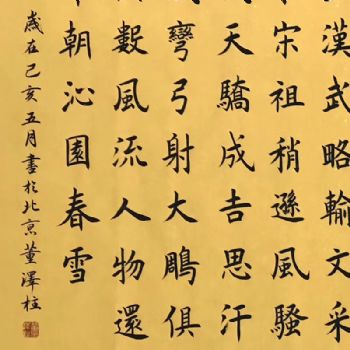 漢武略輸文采
宋祖稍遜風騷
天驕成吉思汗
彎弓射大鵰俱
數風流人物還
朝沁園春雪
歲在己亥五月書於北京董澤柱